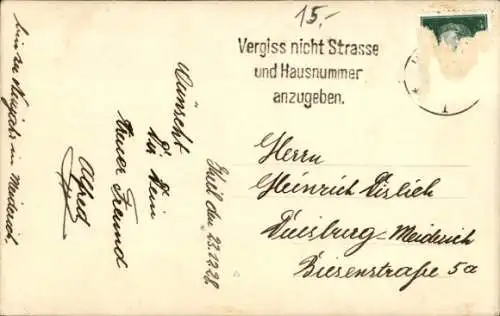 15,-
Vergiss nicht Strasse
und Hausnummer
anzugeben.
Wünscht
Dir Dein
treuer Freund
Alfred
Kiel den 23.12.28
bin zu Neujahr in Meiderich.
Herrn
Heinrich Dislich
Duisburg-Meiderich
Biesenstraße 5a